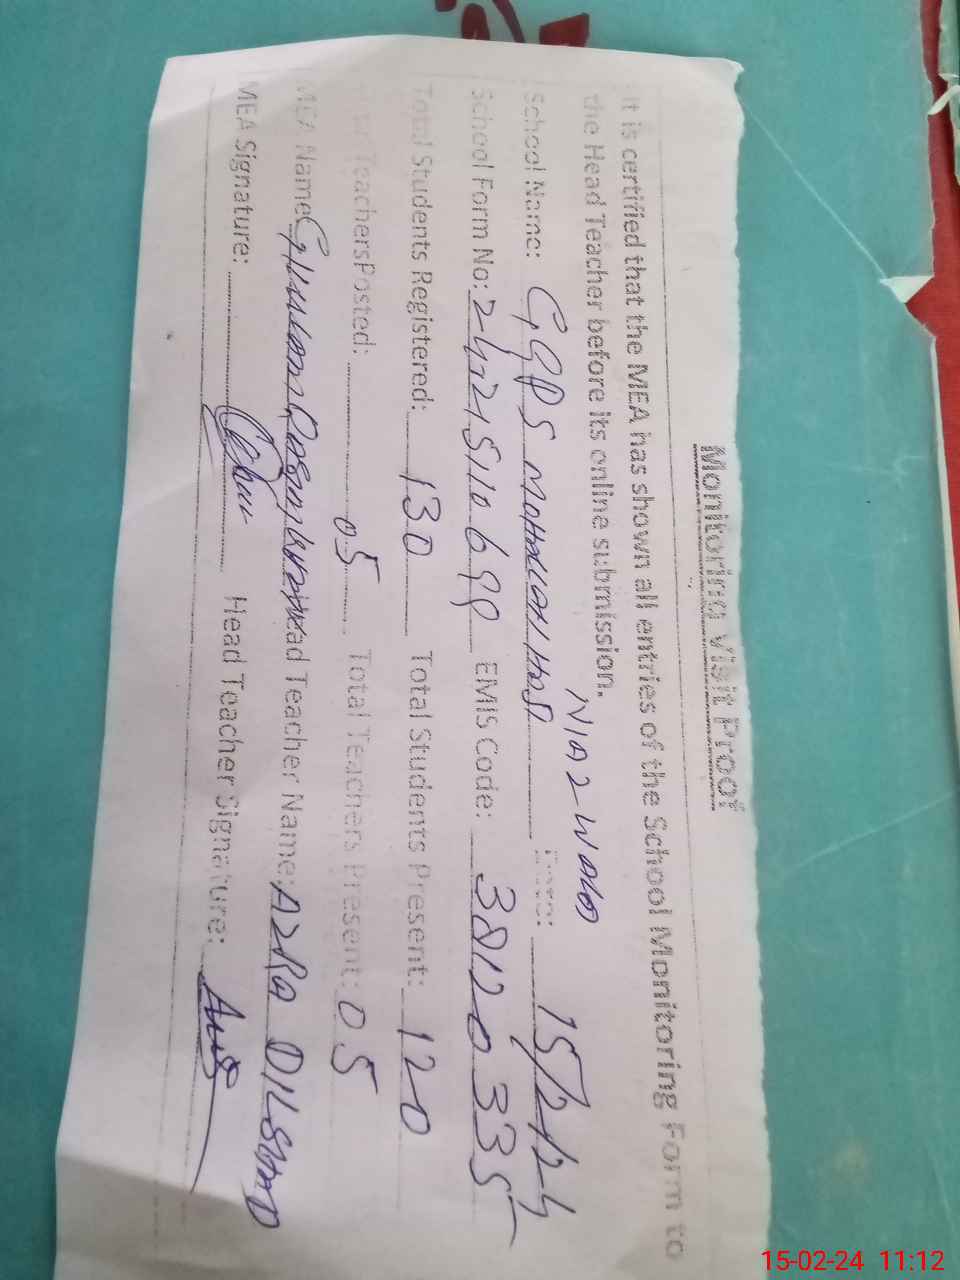 Monitoring Visit Proof
It is certified that the MEA has shown all entries of the School Monitoring Form to
the Head Teacher before its online submission.
NIAZWALA
School Name: GGPS Date: 15/2/24
School Form No: EMIS Code: 38120335
Total Students Registered: 130 Total Students Present: 120
Total Teachers Posted: 05 Total Teachers Present: 05
MEA Name: Head Teacher Name: AZRA DILSHAD
MEA Signature: Head Teacher Signature:
15-02-24 11:12